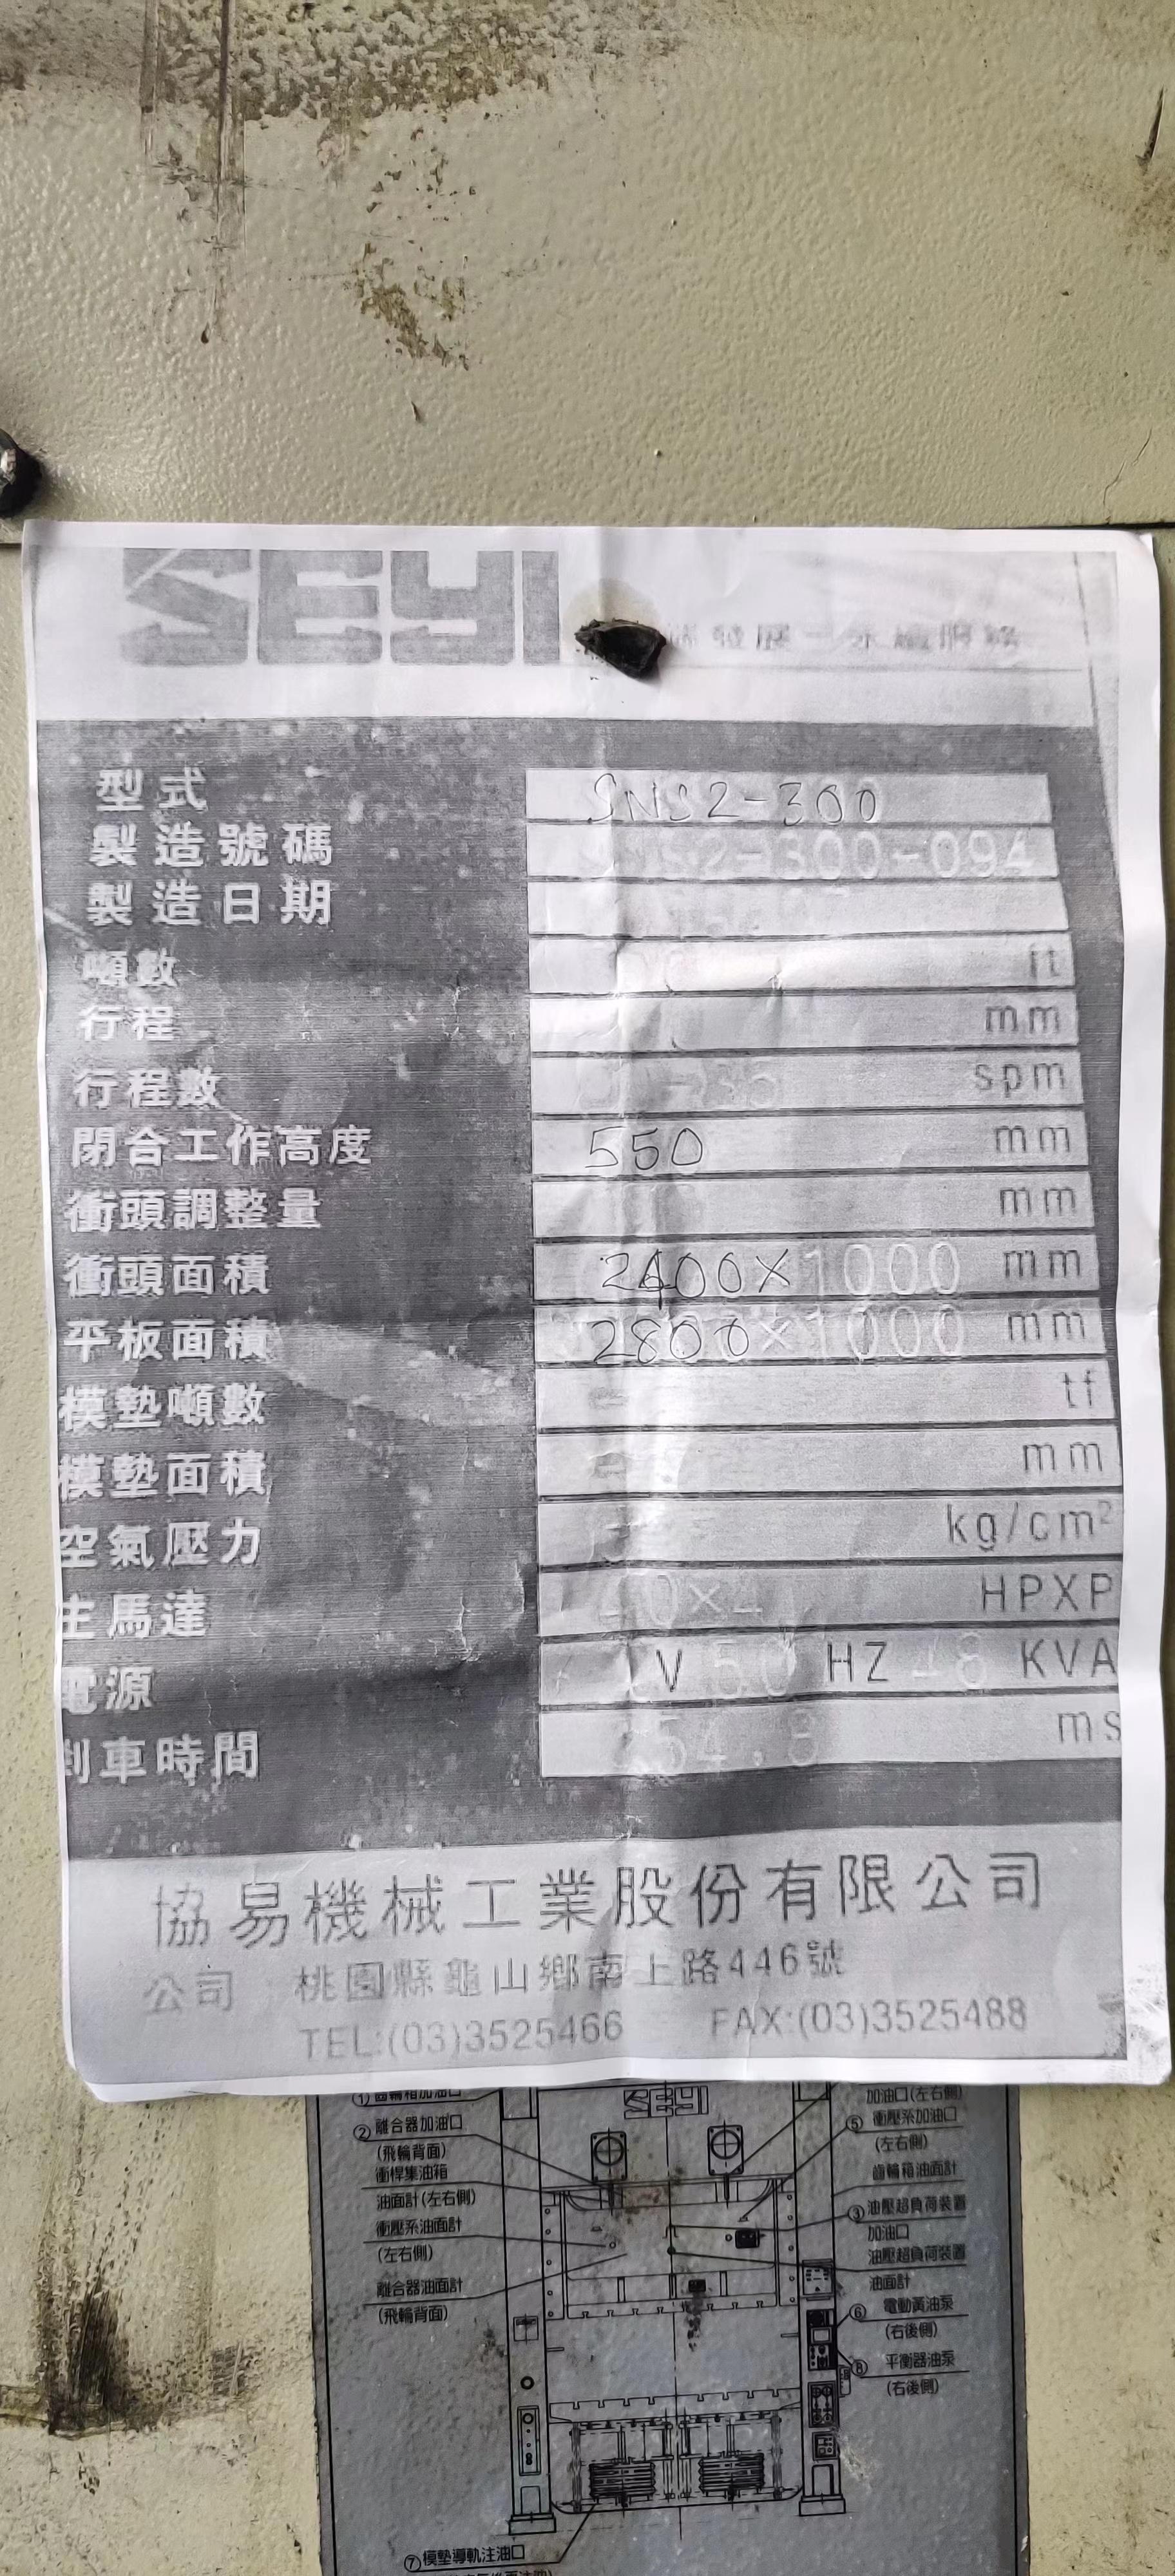 SEYI
型式 SNS2-300
製造號碼 SNS2-300-094
製造日期
噸數 ft
行程 mm
行程數 -35 spm
閉合工作高度 550 mm
衝頭調整量 mm
衝頭面積 2400×1000 mm
平板面積 2800×1000 mm
模墊噸數 tf
模墊面積 mm
空氣壓力 kg/cm²
主馬達 40×4 HPXP
電源 V 50 HZ 48 KVA
剎車時間 254.8 ms
協易機械工業股份有限公司
公司 桃園縣龜山鄉南上路446號
TEL:(03)3525466 FAX:(03)3525488
SEYI
① 齒輪箱加油口
② 離合器加油口
(飛輪背面)
衝桿集油箱
油面計(左右側)
衝壓系油面計
(左右側)
離合器油面計
(飛輪背面)
加油口(左右側)
⑤ 衝壓系加油口
(左右側)
齒輪箱油面計
③ 油壓超負荷裝置
加油口
油壓超負荷裝置
油面計
⑥ 電動黃油泵
(右後側)
⑧ 平衡器油泵
(右後側)
⑦ 模墊導軌注油口